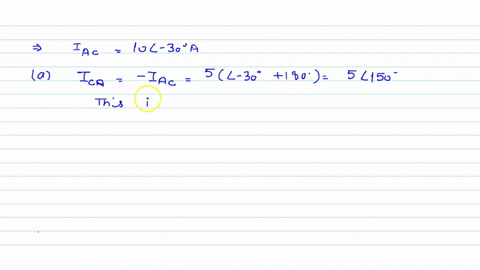 ⇒ I_AC = 10∠-30°A
(a) I_CA = -I_AC = 5(∠-30° +180°) = 5∠150°
This i